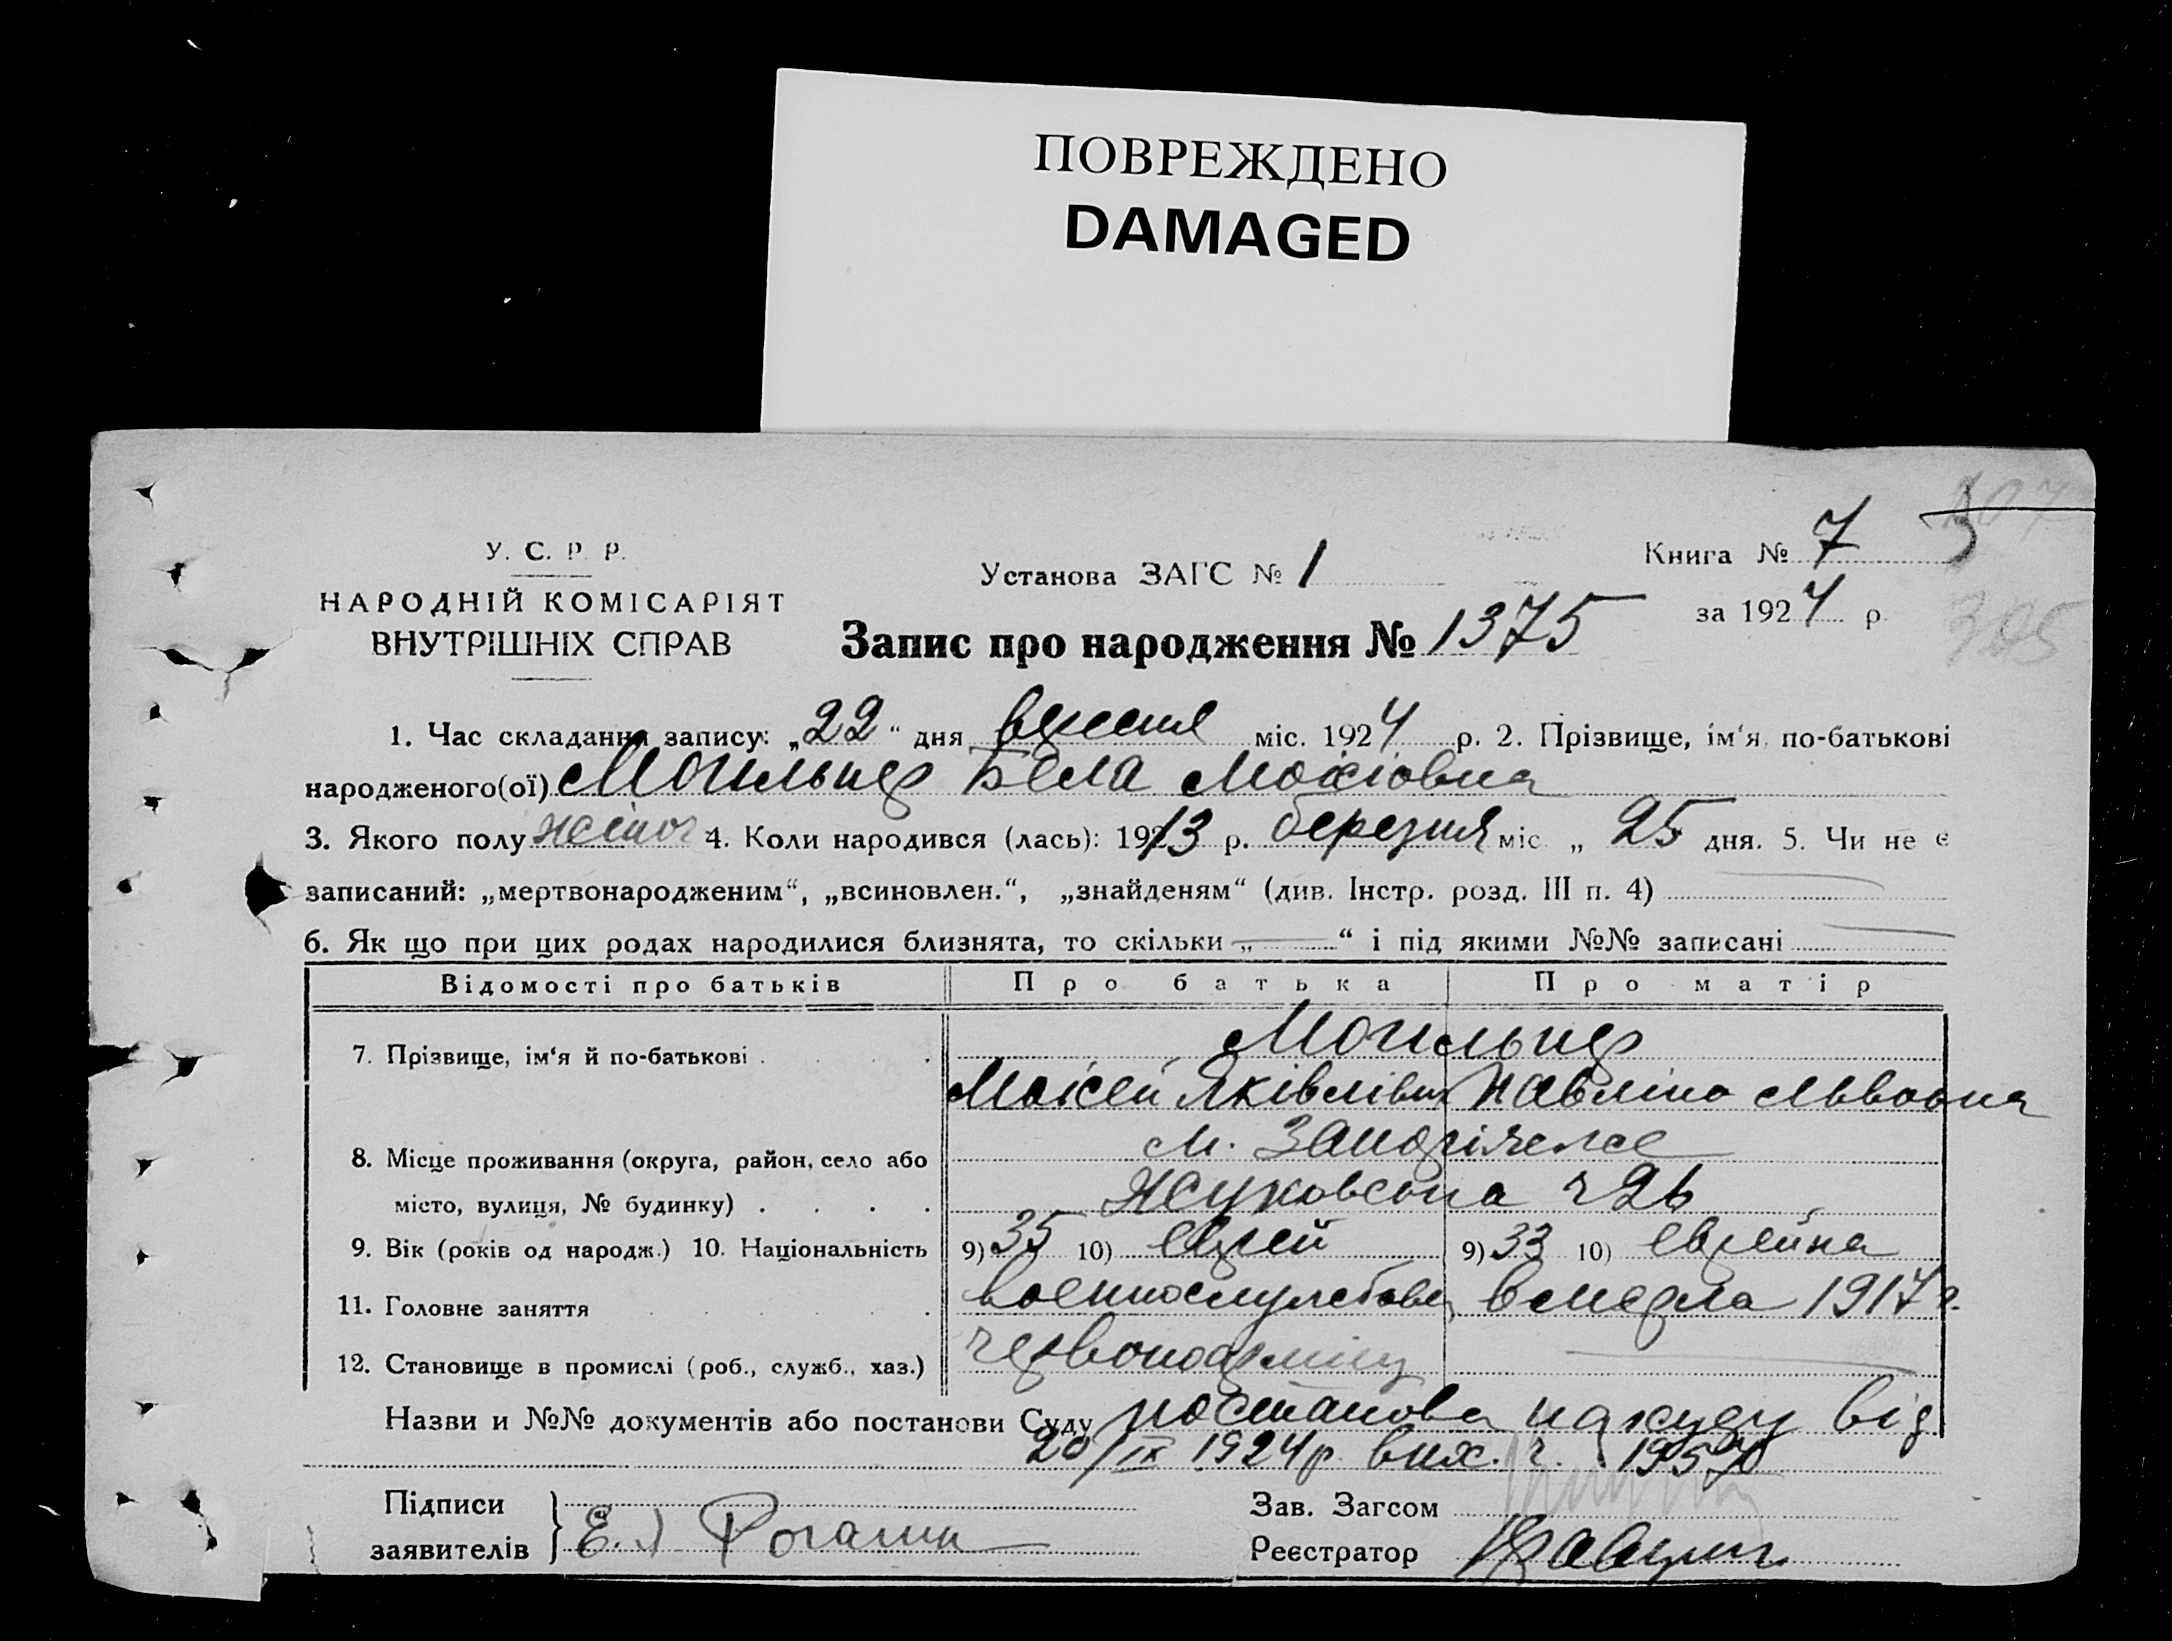 ПОВРЕЖДЕНО
DAMAGED
У. С. Р. Р.
НАРОДНІЙ КОМІСАРІЯТ
ВНУТРІШНІХ СПРАВ
Установа ЗАГС № 1
Книга № 7
за 1924 р.
305
Запис про народження № 1375
1. Час складання запису: „22“ дня вересня міс. 1924 р. 2. Прізвище, ім‘я, по-батькові
народженого(ої) Могильнер Бела Мойсіовна
3. Якого полу жіноч 4. Коли народився (лась): 1913 р. березня міс. „ 25 дня. 5. Чи не є
записаний: „мертвонародженим“, „всиновлен.“, „знайденям“ (див. Інстр. розд. III п. 4)
6. Як що при цих родах народилися близнята, то скільки „—“ і під якими №№ записані —
Відомості про батьків Про батька Про матір
7. Прізвище, ім‘я й по-батькові . Могильнер
Мойсей Яківлівич Павліна Львовна
8. Місце проживання (округа, район, село або м. Запоріжже
місто, вулиця, № будинку) . . . . Жуковська ч 26
9. Вік (років од народж.) 10. Національність 9) 35 10) еврей 9) 33 10) еврейка
11. Головне заняття военнослужбовец вмерла 1917 р.
12. Становище в промислі (роб., служб., хаз.) червоноармієц —
Назви и №№ документів або постанови Суду постанова нарсуду від
20/IX 1924 р. вих. ч. 19570
Підписи
заявителів } Е. Рогашн
Зав. Загсом
Реєстратор